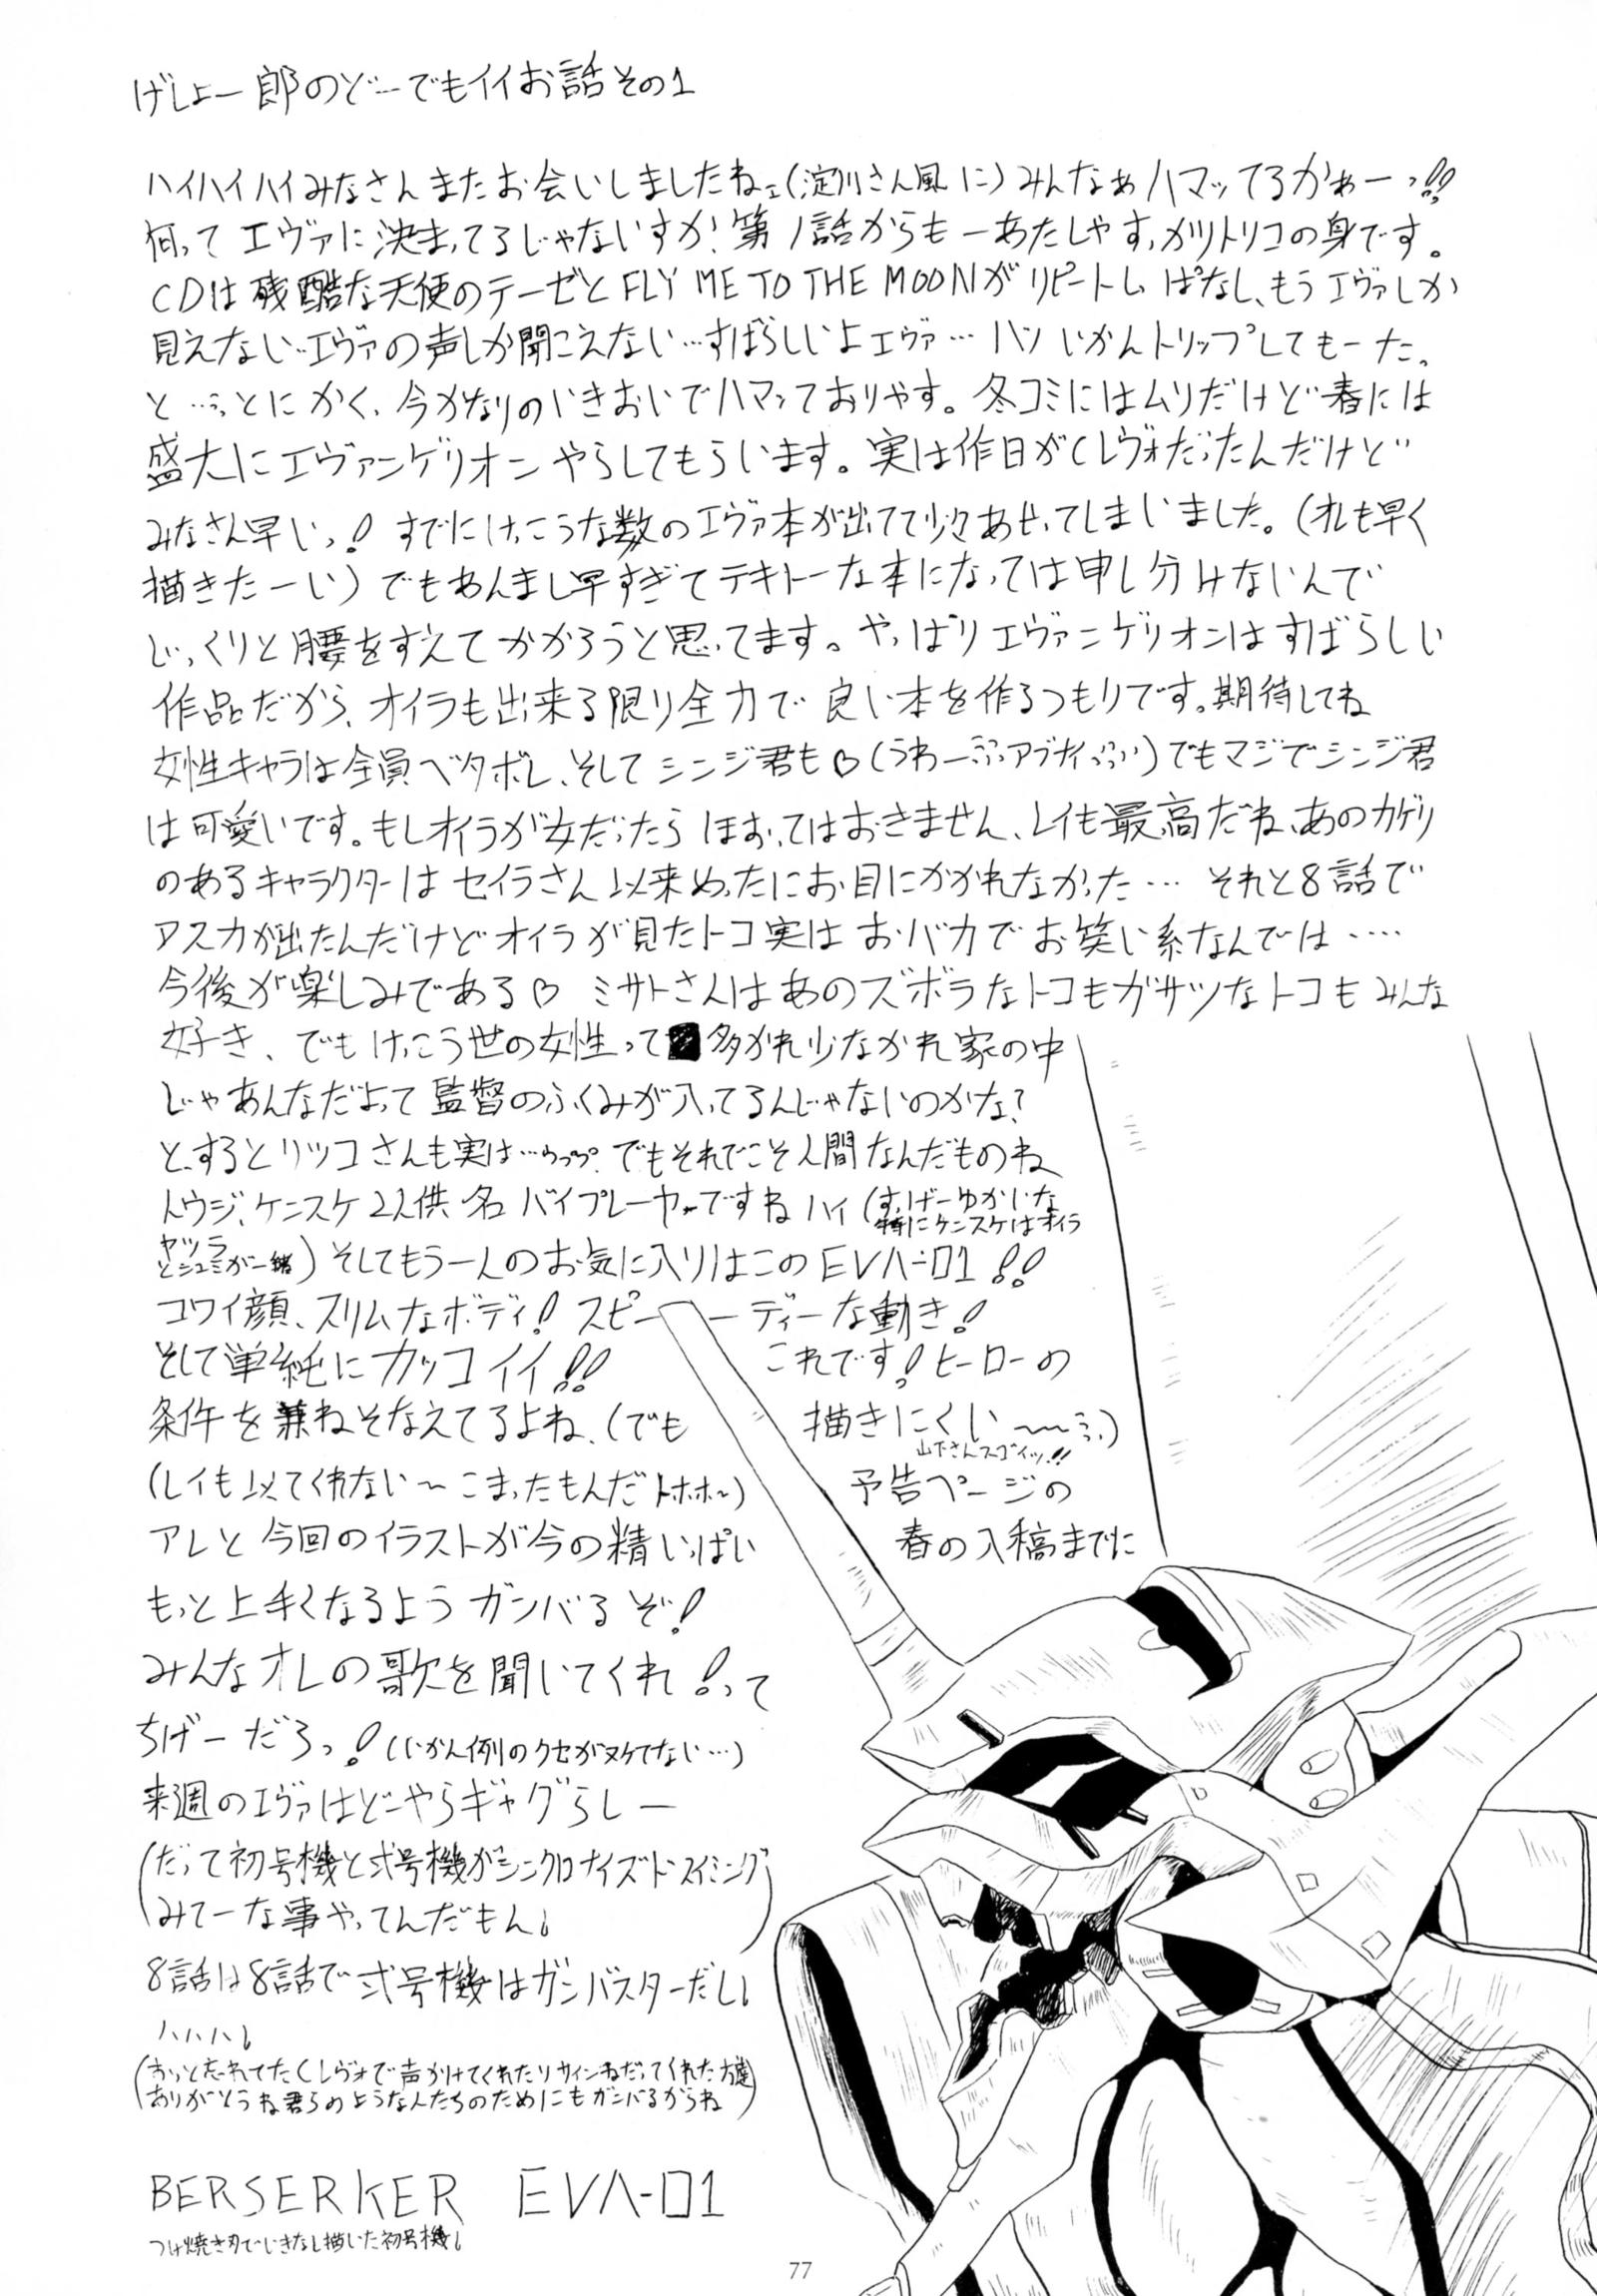 げしょー郎のどーでもイイお話その1
ハイハイハイみなさんまたお会いしましたねェ(淀川さん風に)みんなぁハマッてるかぁーっ!!
何ってエヴァに決まってるじゃないすか!第1話からもーあたしゃすっカリトリコの身です。
CDは残酷な天使のテーゼとFLY ME TO THE MOONがリピートしっぱなし、もうエヴァしか
見えない…エヴァの声しか聞こえない…すばらしいよエヴァ… ハッ いかんトリップしてもーた。
と…とにかく、今かなりのいきおいでハマッておりやす。冬コミにはムリだけど春には
盛大にエヴァンゲリオンやらしてもらいます。実は作日がCレヴォだったんだけど
みなさん早いっ!すでにけっこうな数のエヴァ本が出てて少々あせってしまいました。(オレも早く
描きたーい)でもあんまし早すぎてテキトーな本になっては申し分けないんで
じっくりと腰をすえてかかろうと思ってます。やっぱりエヴァンゲリオンはすばらしい
作品だから、オイラも出来る限り全力で良い本を作るつもりです。期待してね
女性キャラは全員ベタボレ、そしてシンジ君も♡(うわーアブナイ)でもマジでシンジ君
は可愛いです。もしオイラが女だったらほおってはおきません、レイも最高だね、あのカゲリ
のあるキャラクターはセイラさん以来めったにお目にかかれなかった… それと8話で
アスカが出たんだけどオイラが見たトコ実はおバカでお笑い系なんでは‥‥
今後が楽しみである♡ ミサトさんはあのズボラなトコもガサツなトコもみんな
好き、でもけっこう世の女性って多かれ少なかれ家の中
じゃあんなだよって監督のふくみが入ってるんじゃないのかな?
とするとリツコさんも実は…でもそれでこそ人間なんだものね
トウジ、ケンスケ2人供名バイプレーヤーですねハイ(すっげーゆかいな
ヤツラ 特にケンスケはオイラ
とシュミが一緒)そしてもう一人のお気に入りはこのEVA-01!!
コワイ顔、スリムなボディ!スピーーディーな動き!
そして単純にカッコイイ!! これです!ヒーローの
条件を兼ねそなえてるよね、(でも 描きにくい〜)
山下さんスゴイッ!!
(レイも似てくれない〜こまったもんだトホホ〜) 予告ページの
アレと今回のイラストが今の精いっぱい 春の入稿までに
もっと上手くなるようガンバるぞ!
みんなオレの歌を聞いてくれ!って
ちげーだろっ!(いかん例のクセがヌケてない…)
来週のエヴァはどーやらギャグらしー
(だって初号機と弐号機がシンクロナイズドスイミング
みてーな事やってんだもん)
8話は8話で弐号機はガンバスターだし
ハハハ
(おっと忘れてたCレヴォで声かけてくれたりサインねだってくれた方達
ありがとうね君らのような人たちのためにもガンバるからね)
BERSERKER EVA-01
つけ焼き刃でいきなし描いた初号機
77